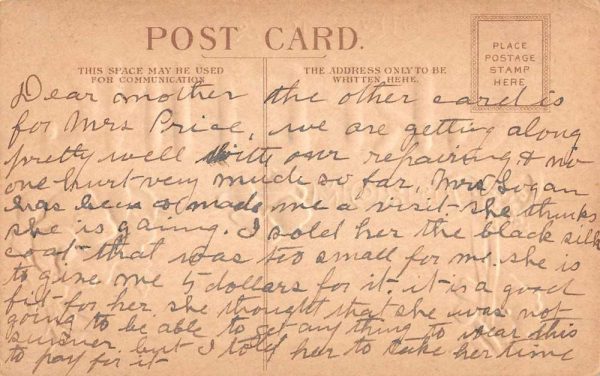 POST CARD.
THIS SPACE MAY BE USED
FOR COMMUNICATION
THE ADDRESS ONLY TO BE
WRITTEN HERE.
PLACE
POSTAGE
STAMP
HERE
Dear mother the other card is
for Mrs Price, we are getting along
pretty well with our repairing & no
one hurt very much so far, Mrs Logan
has been & made me a visit she thinks
she is gaing. I sold her the black silk
coat that was too small for me. she is
to give me 5 dollars for it, it is a good
fit for her she thought that she was not
going to be able to get any thing to wear this
summer but I told her to take her time
to pay for it